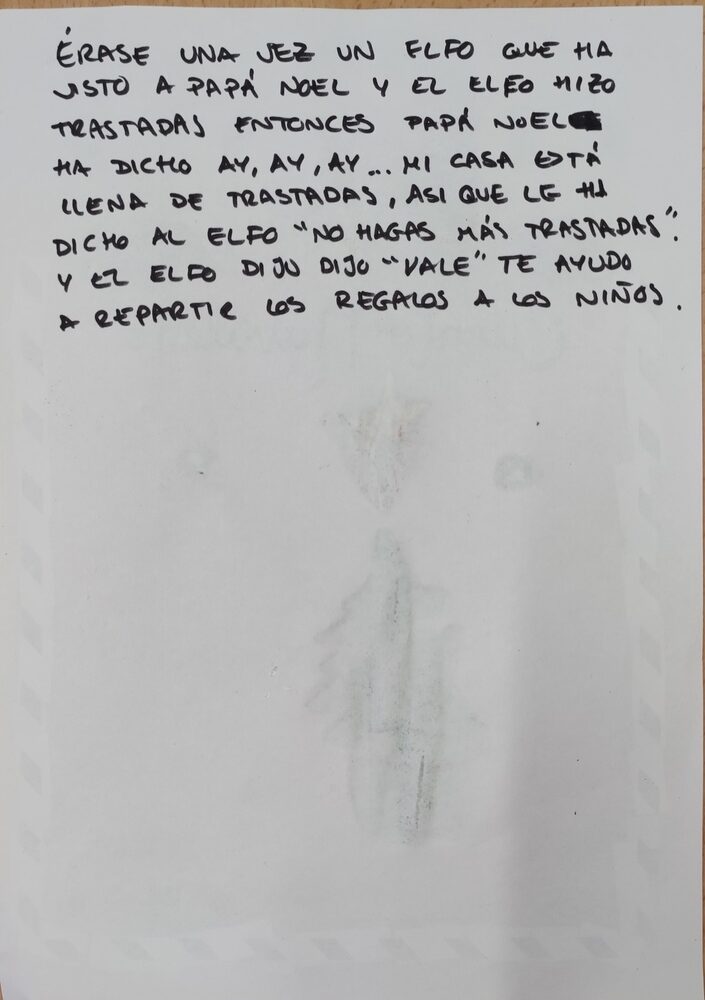 ÉRASE UNA VEZ UN ELFO QUE HA
VISTO A PAPÁ NOEL Y EL ELFO HIZO
TRASTADAS ENTONCES PAPÁ NOEL
HA DICHO AY, AY, AY... MI CASA ESTÁ
LLENA DE TRASTADAS, ASI QUE LE HA
DICHO AL ELFO "NO HAGAS MÁS TRASTADAS".
Y EL ELFO DIJO DIJO "VALE" TE AYUDO
A REPARTIR LOS REGALOS A LOS NIÑOS.